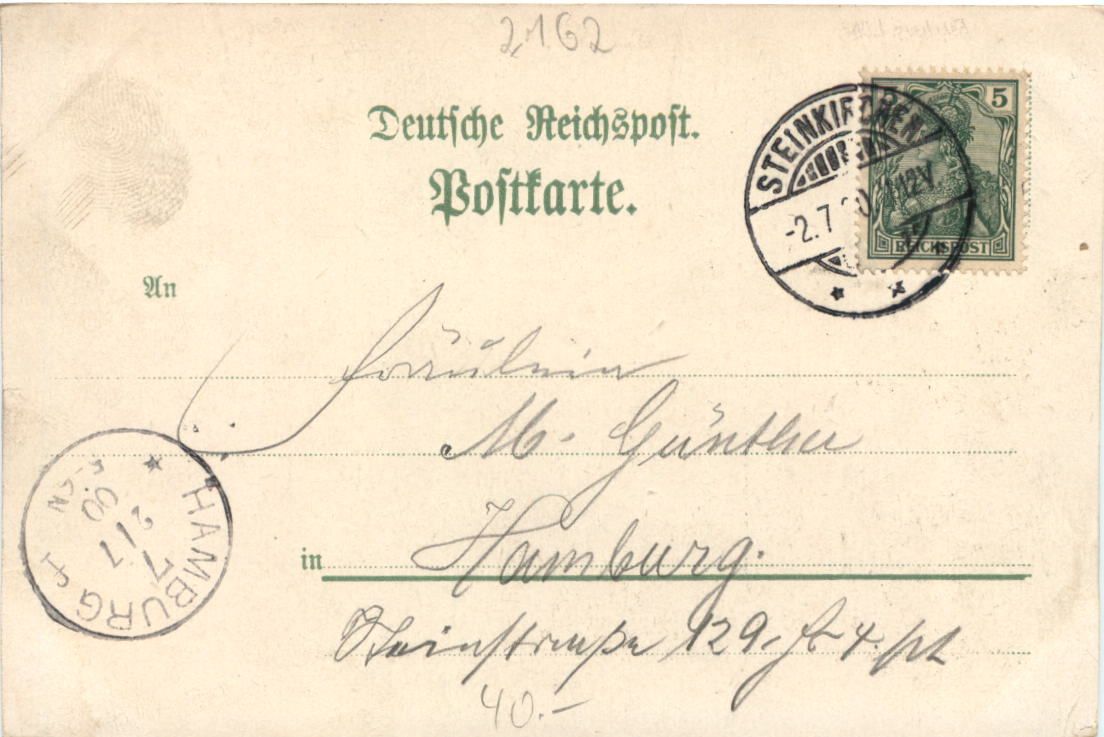 2162
Deutsche Reichspost.
Postkarte.
5
REICHSPOST
STEINKIRCHEN
-2.7 00
An
Fräulein
M. Günther
in Hamburg.
Steinstraße 129. Hs 4. pt
HAMBURG
2/7
00
40.-